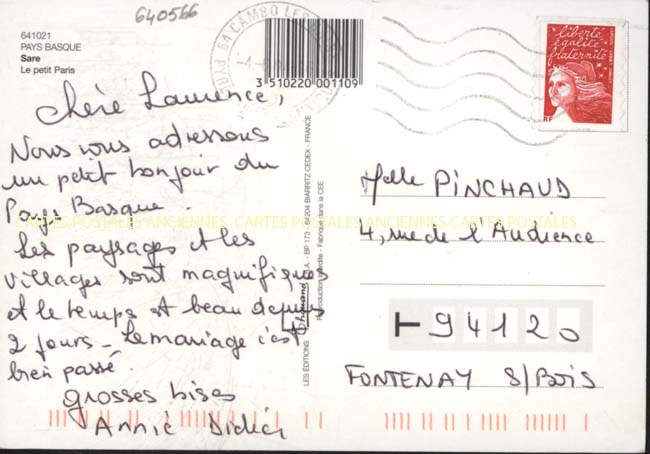 640566
641021
PAYS BASQUE
Sare
Le petit Paris
64 CAMBO LES
3 510220 001109
liberté
égalité
fraternité
RF
Chère Laurence,
Nous vous adressons
un petit bonjour du
Pays Basque.
Les paysages et les
villages sont magnifiques
et le temps est beau depuis
2 jours - Le mariage s'est
bien passé.
grosses bises
Annie Didier
CARTES POSTALES ANCIENNES CARTES POSTALES ANCIENNES CARTES POSTALES ANCIENNES
LES ÉDITIONS
S.A. - BP 173 - 64204 BIARRITZ CEDEX - FRANCE
Reproduction interdite - Fabriqué dans la CEE
Melle PINCHAUD
4, rue de l'Audience
94120
FONTENAY S/Bois